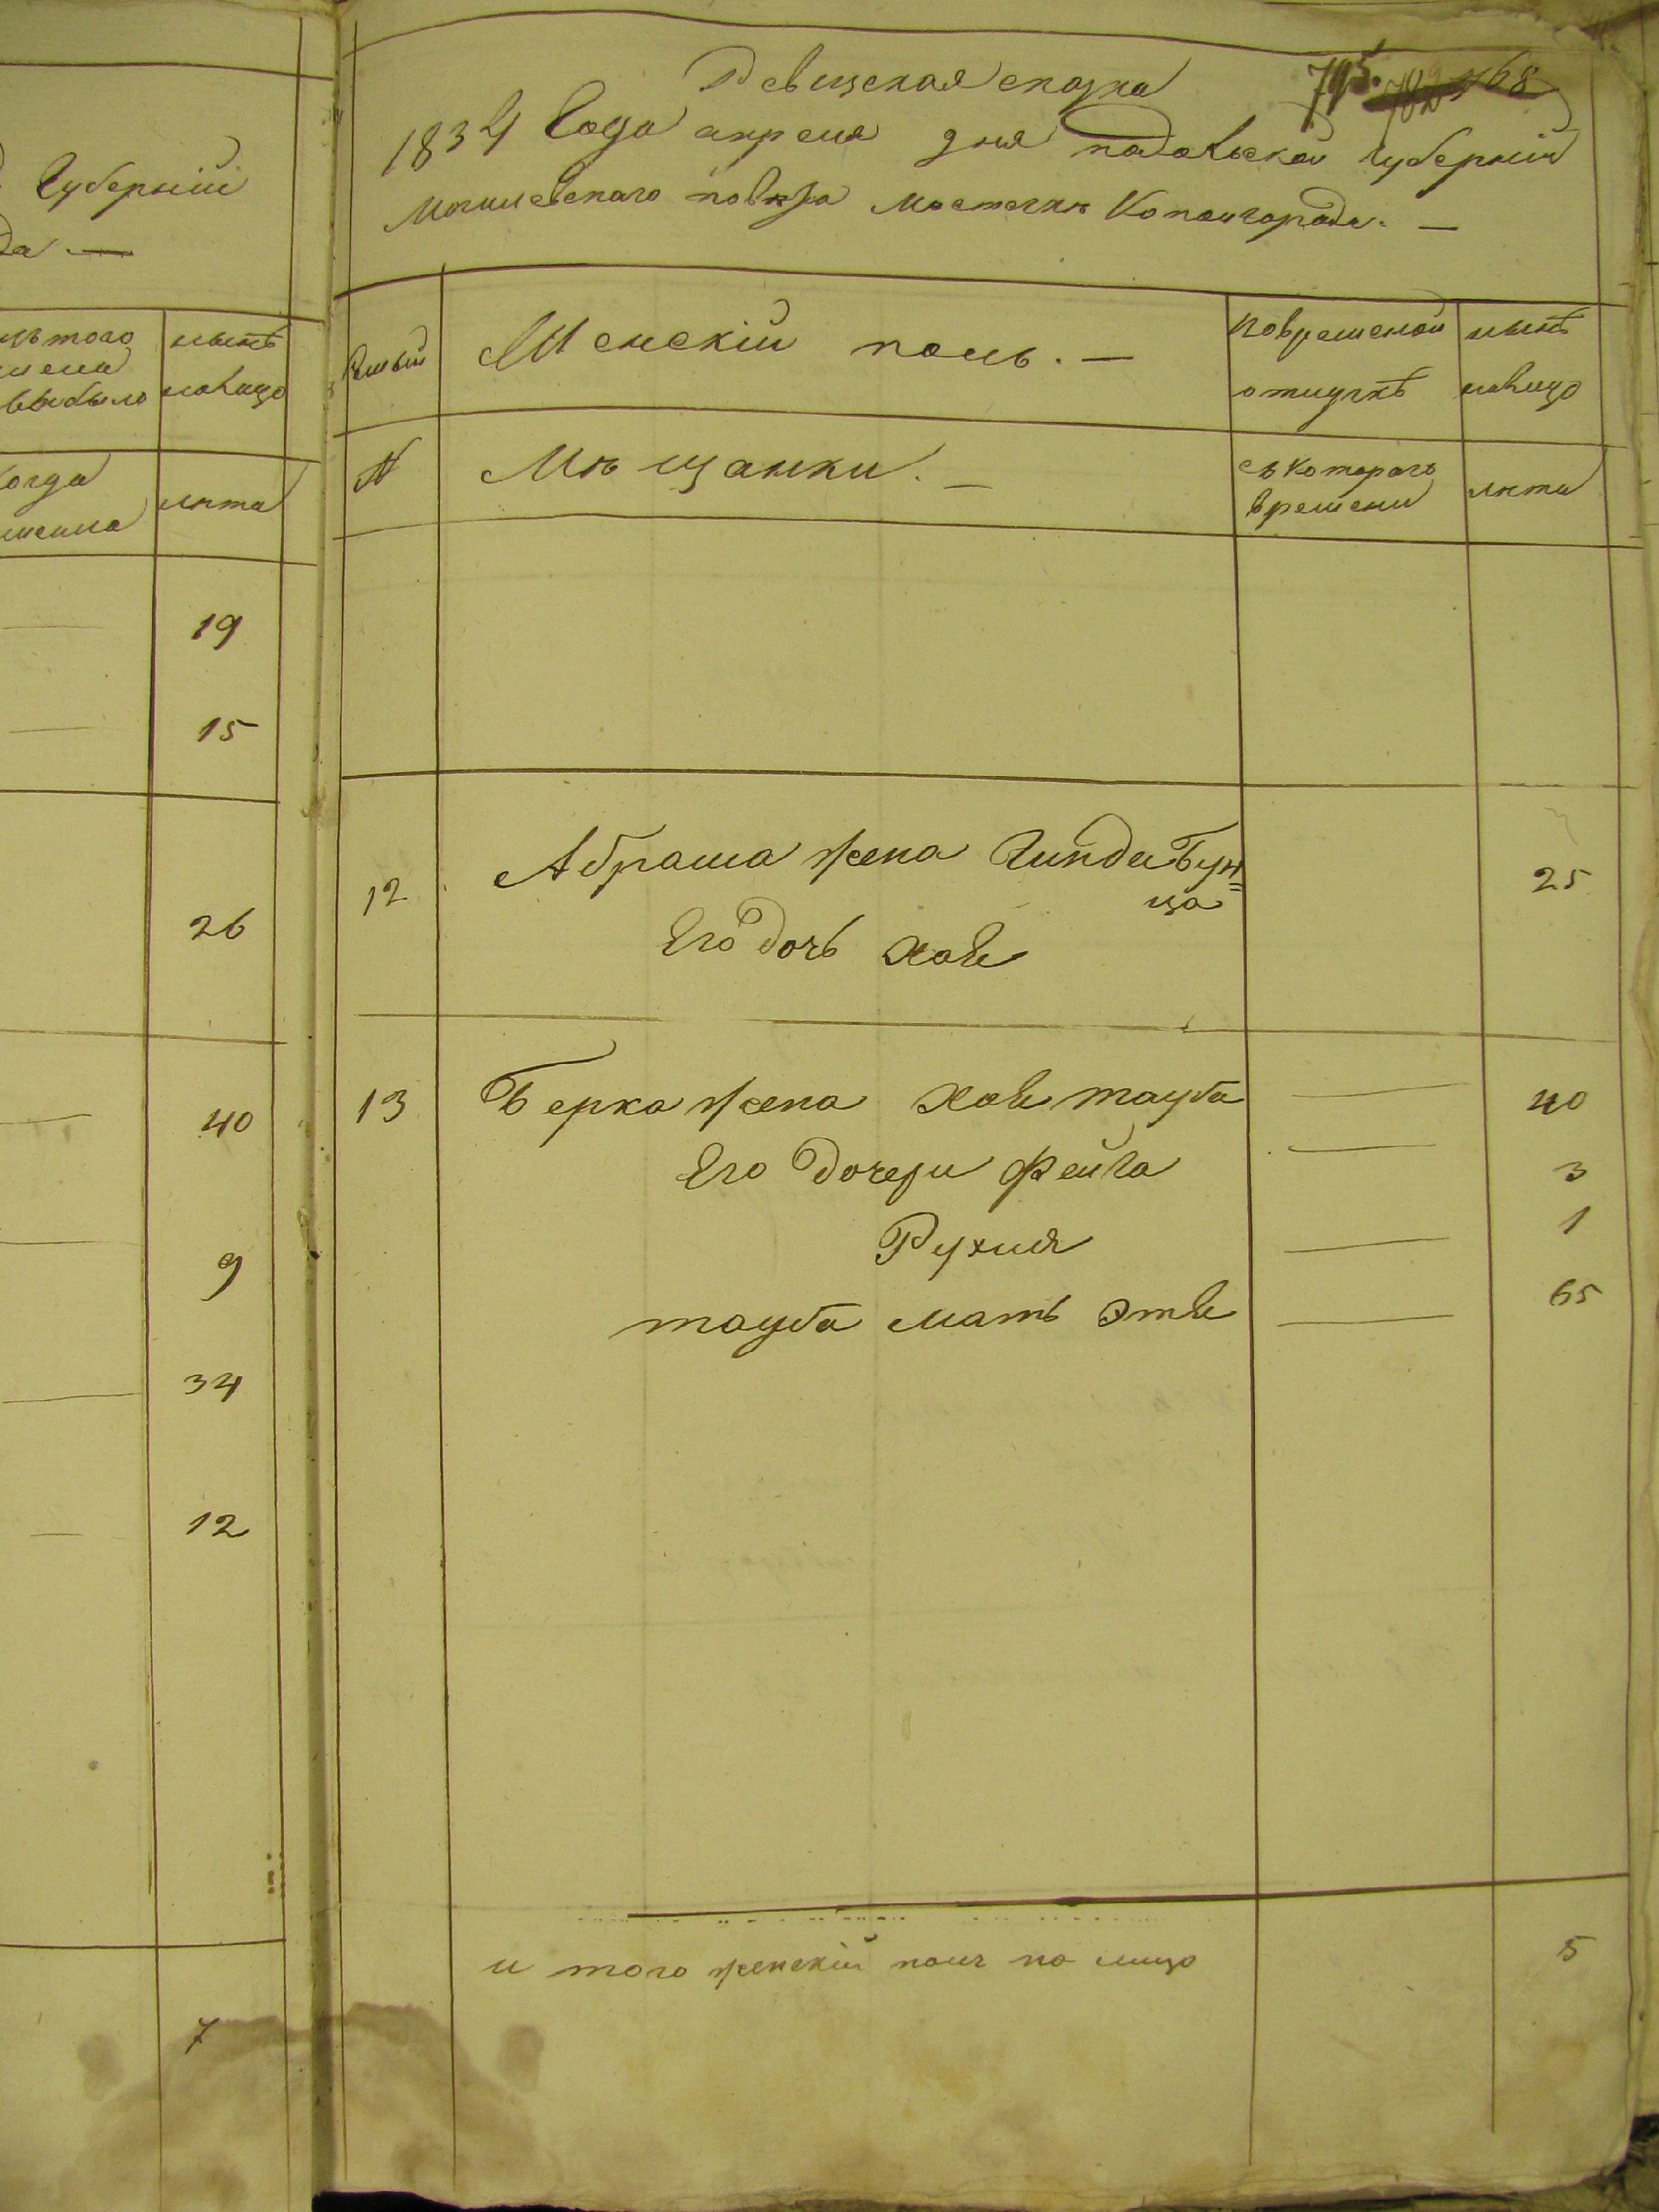 Губерніи
да. —
нынѣ
выбыло налицо
когда
лѣта
19
15
26
40
9
34
12
7
Ревизская сказка
795. 782 768
1834 Года апреля дня подольской Губерніи
Могилевскаго повѣта мѣстечкѣ Копайгорода. —
Женскій полъ. —
Повременной нынѣ
отлучкѣ налицо
№ Мѣщанки. —
съ Котораго
времени лѣта
12 Абрама жена Гинда Бун=
ца 25
Его дочь Хая
13 Берка жена Хая тауба — 40
Его дочери Фейга — 3
Рухля — 1
тауба мать Этя — 65
и того женскій полъ на лицо 5